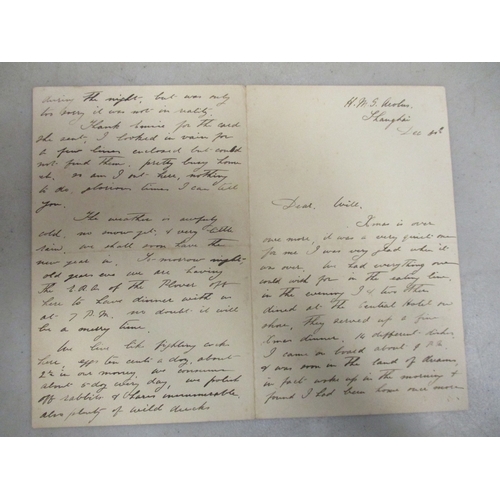 H.M.S. Aeolus,
Shanghai
Dec 30th
Dear Will,
Xmas is over
once more, it was a very quiet one
for me I was very glad when it
was over, we had everything one
could wish for in the eating line,
in the evening I & two others
dined at the Central Hotel on
shore, they served up a fine
Xmas dinner, 14 different dishes,
I came on board about 9 P.M.
& was soon in the land of dreams,
in fact woke up in the morning &
found I had been home once more
during the night, but was only
too sorry it was not in reality.
Thank for the card
she sent, I looked in vain for
a few lines enclosed but could
not find them. pretty busy home
eh, so am I out here, nothing
to do, glorious times I can tell
you.
The weather is awfully
cold, no snow yet, & very little
rain, we shall soon have the
new year in. To morrow night,
old years eve we are having
the of the Plover off
here to have dinner with us
at 7 P.M. no doubt it will
be a merry time.
We live like fighting cocks
here, eggs ten cents a doz, about
2½ in our money, we consume
about 6 doz every day, we
off rabbits & hares innumerable,
also plenty of wild ducks